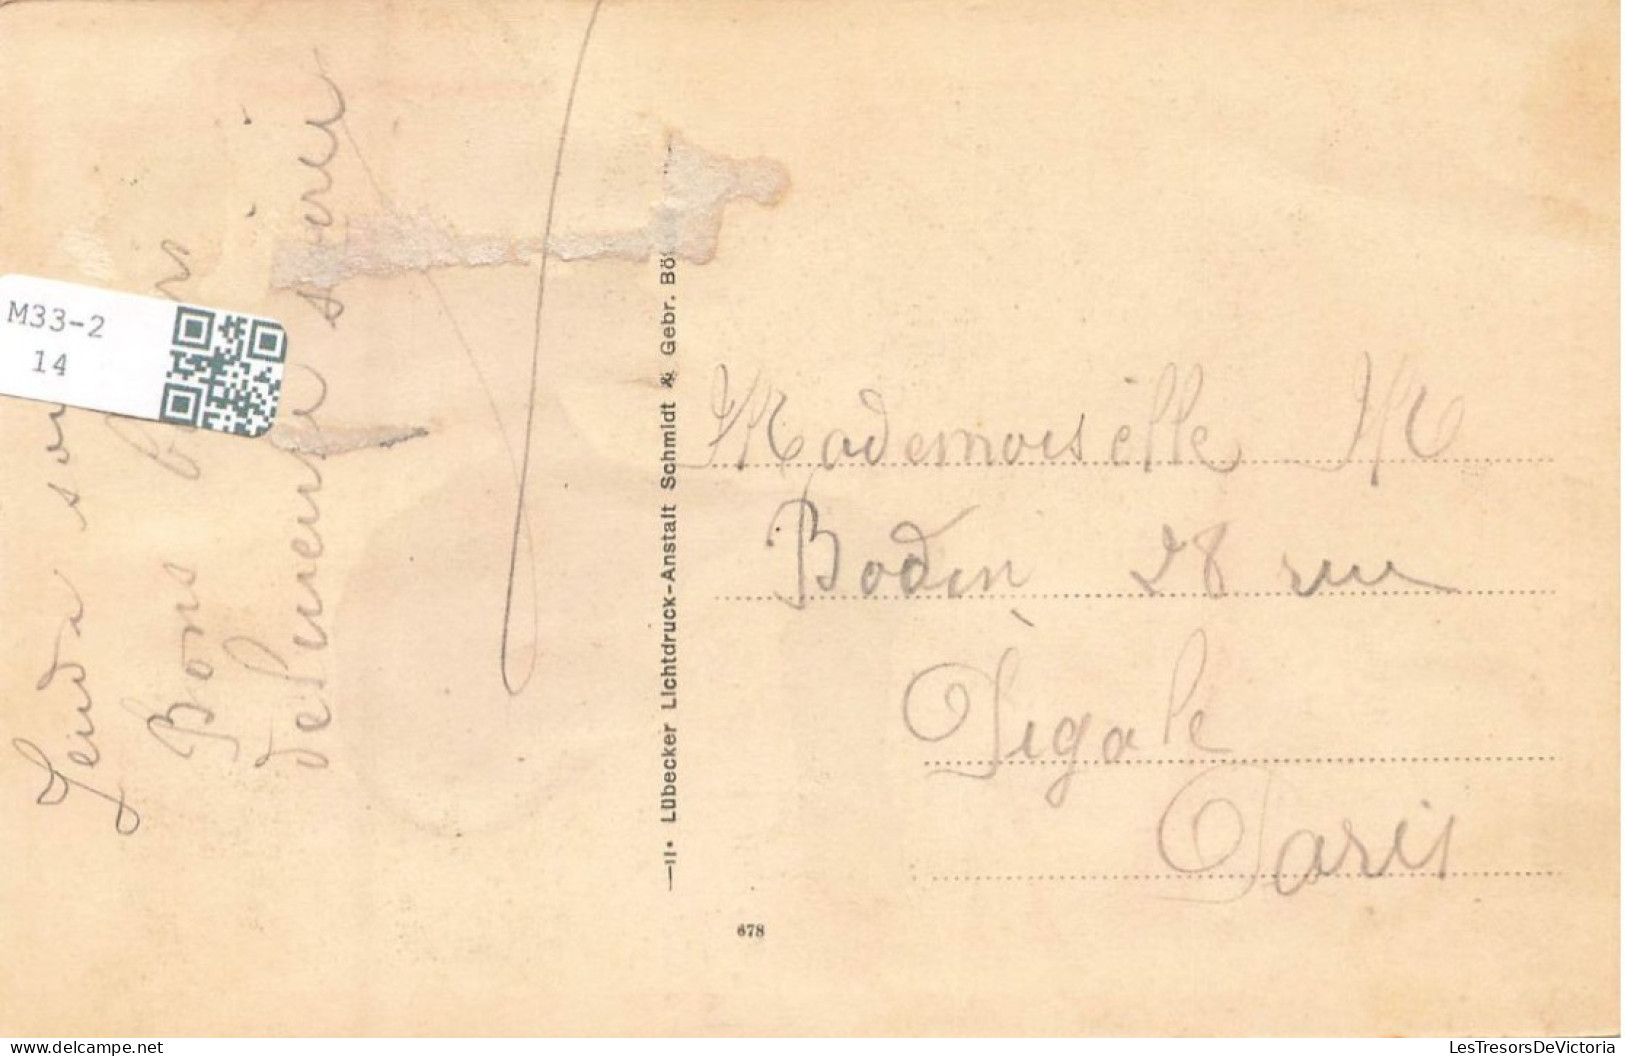 M33-2
14
Bons
de
Lübecker Lichtdruck-Anstalt Schmidt & Gebr. Bö
Mademoiselle M
Bodin 28 rue
Pigale
Paris
678
delcampe.net
LesTresorsDeVictoria